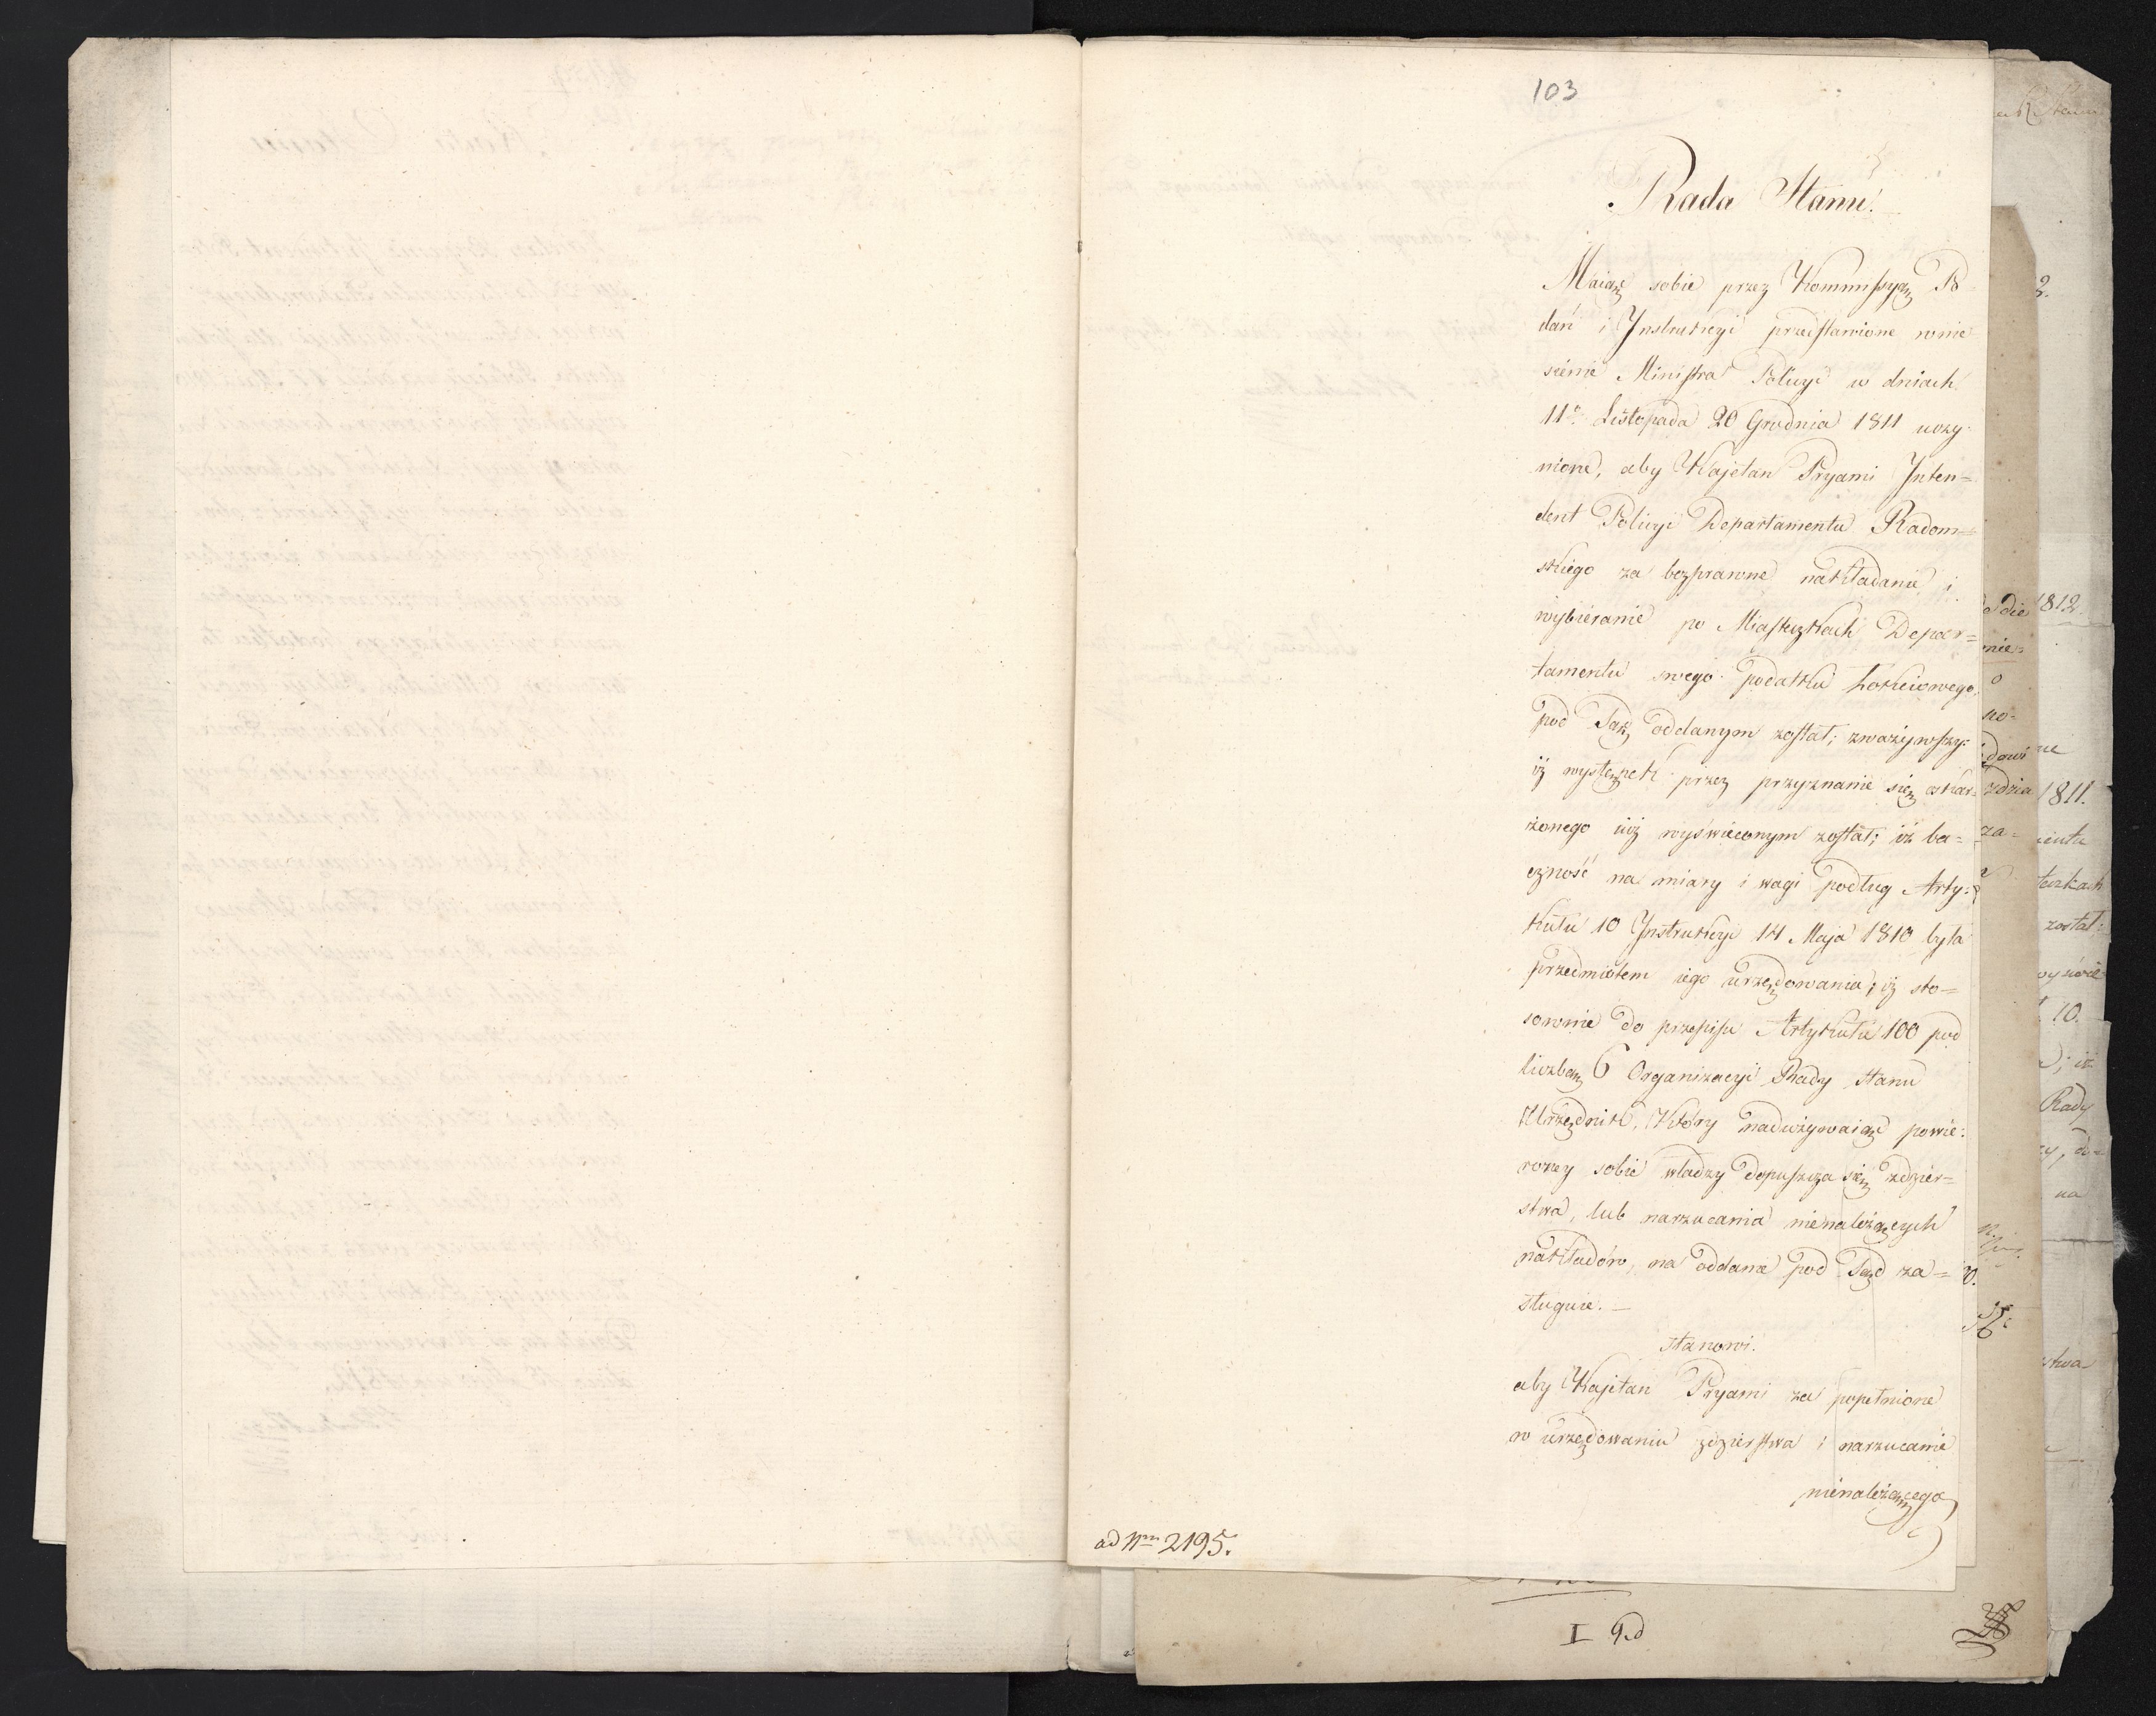 103
Rada Stanu.
Maiąc sobie przez Kommissyą Po
dań i Instrukcyi przedstawione wnie
sienie Ministra Policyi w dniach
11o. Listopada 20 Grudnia 1811 uczy-
nione, aby Kajetan Pryami Inten=
dent Policyi Departamentu Radom=
skiego za bezprawne nakładanie i
wybieranie po Miasteczkach Depar=
tamentu swego podatku Łokciowego,
pod Sąd oddanym został; zważywszy:
iż występek przez przyznanie się oskar=
żonego iuż wyświeconym został; iż ba=
czność na miary i wagi podług Arty=
kułu 10 Instrukcyi 14 Maja 1810 była
przedmiotem iego urzędowania; iż sto=
sownie do przepisu Artykułu 100 pod
liczbą 6 Organizacyi Rady Stanu
Urzędnik, Który nadużywaiąc powie-
rzoney sobie władzy dopuszcza się zdzier=
stwa, lub narzucania nienależących
nakładów, na oddanie pod Sąd za=
sługuie. —
Stanowi.
aby Kajetan Pryami za popełnione
w urzędowaniu zdzierstwa i narzucanie
nienależącego
ad Nrm 2195.
I 9d
1812.
1811.
został;
10.
Rady
na
stwa